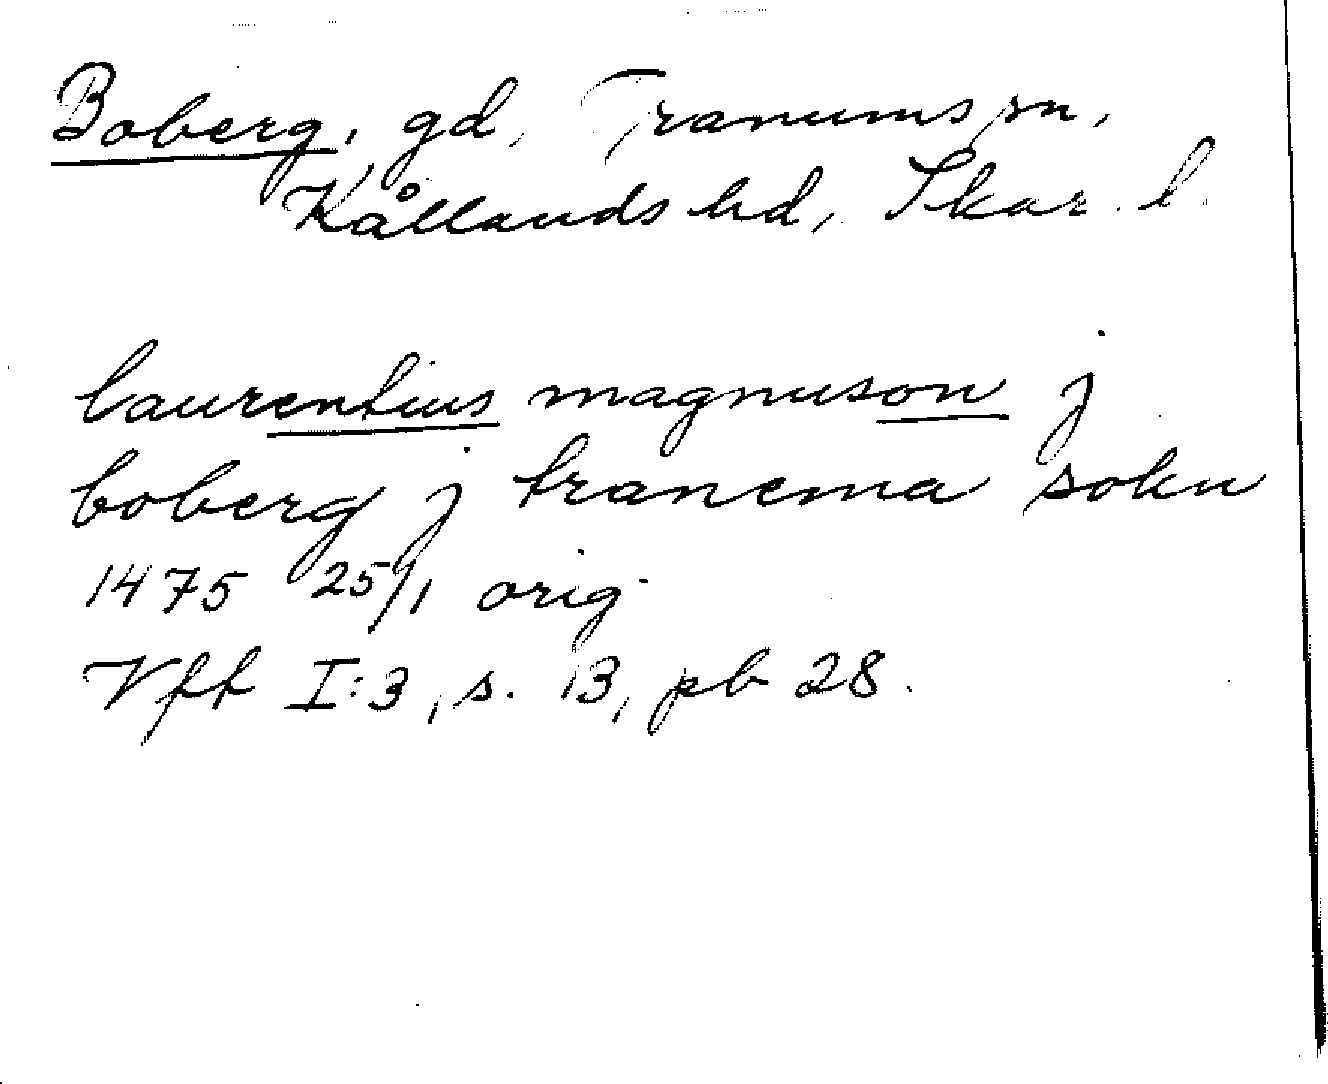 Boberg, gd, Tranums sn,
Kållands hd, Skar. l.
laurentius magnuson j
boberg j tranema sokn
1475 25/1 orig
Vff I:3, s. 13, pb 28.